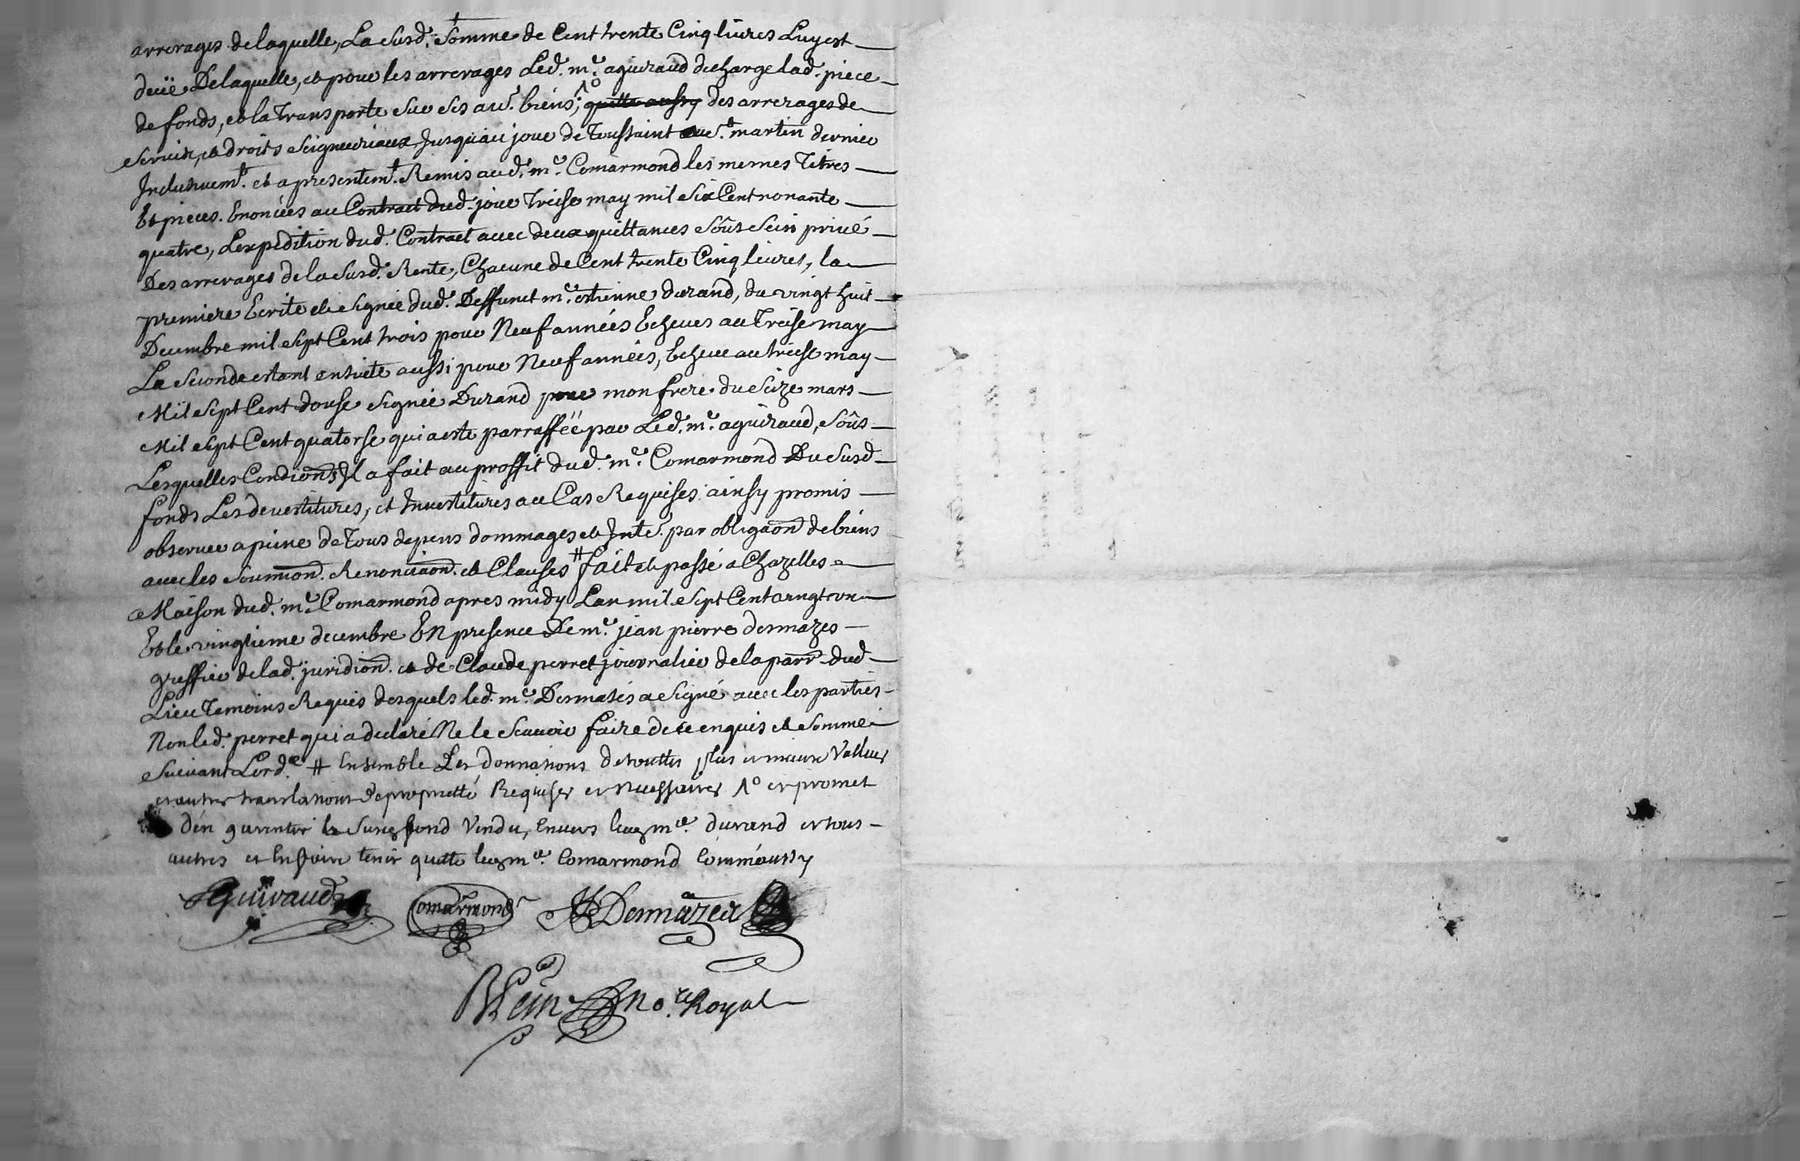 arrerages de laquelle, La Susd. Somme de Cent trente Cinq livres Luy est
deüe De laquelle, et pour les arrerages Led. mr. aguiraud decharge lad. piece
de fonds, et la Transporte sur ses aur. biens, 1o quitte aussy des arrerages de
Servis, et droits Seigneuriaux Jusqu'au jour de Toussaint et St. martin dernier
Inclusivemt. et a presentemt. Remis aud. mr. Comarmond les memes Titres
Et pieces Enoncées au Contract dud. jour Treise may mil Six Cent nonante
quatre, Lexpedition dud. Contract avec deux quittances Sôus Sein privé
Des arrerages de la Susd. Rente, Chacune de Cent trente Cinq livres, la
premiere Ecrite et Signée dud. Deffunct mr. estienne durand, du vingt huit
Decembre mil Sept Cent trois pour Neuf années Echeues au Treise may
La Seconde estant ensuite aussi pour Neuf années, Echeue au treise may
Mil Sept Cent douse Signée Durand pour mon frere du Seize mars
Mil Sept Cent quatorse qui a esté parraffëë par Led. mr. aguiraud, Sôus
Lesquelles Condions Il a fait au proffit dud. mr. Comarmond Du Susd
fonds Les devestitures, et Investitures au Cas Requises ainsy promis
observer a peine de Tous depens dommages et Intes. par obligaon de biens
avec les Soumion. Renonciaon. et Clauses # fait et passé a Chazelles
Maison dud. mr. Comarmond apres midy Lan mil Sept Cent vingt un
Et le vingtieme decembre En presence De mr. jean pierre desmazes
greffier de lad. juridion et de Claude perret journalier de la parr dud.
Lieu Temoins Requis desquels led. mr. Desmases a Signé avec les parties
Non led. perret qui a declaré Ne le Scavoir faire de ce enquis et Sommé
Suivant Lord.ce # Ensemble Les donnations de touttes plus et mieux Valleur
et autres translations de proprietté Requises et necessaires 1o et promet
den garentir le Susd fond Vendu, Envers led mr. durand et tous
autres et En faire tenir quitte led mr. Comarmond Comme aussy
Aguiraud
Comarmond
Desmazes
no.re Royal